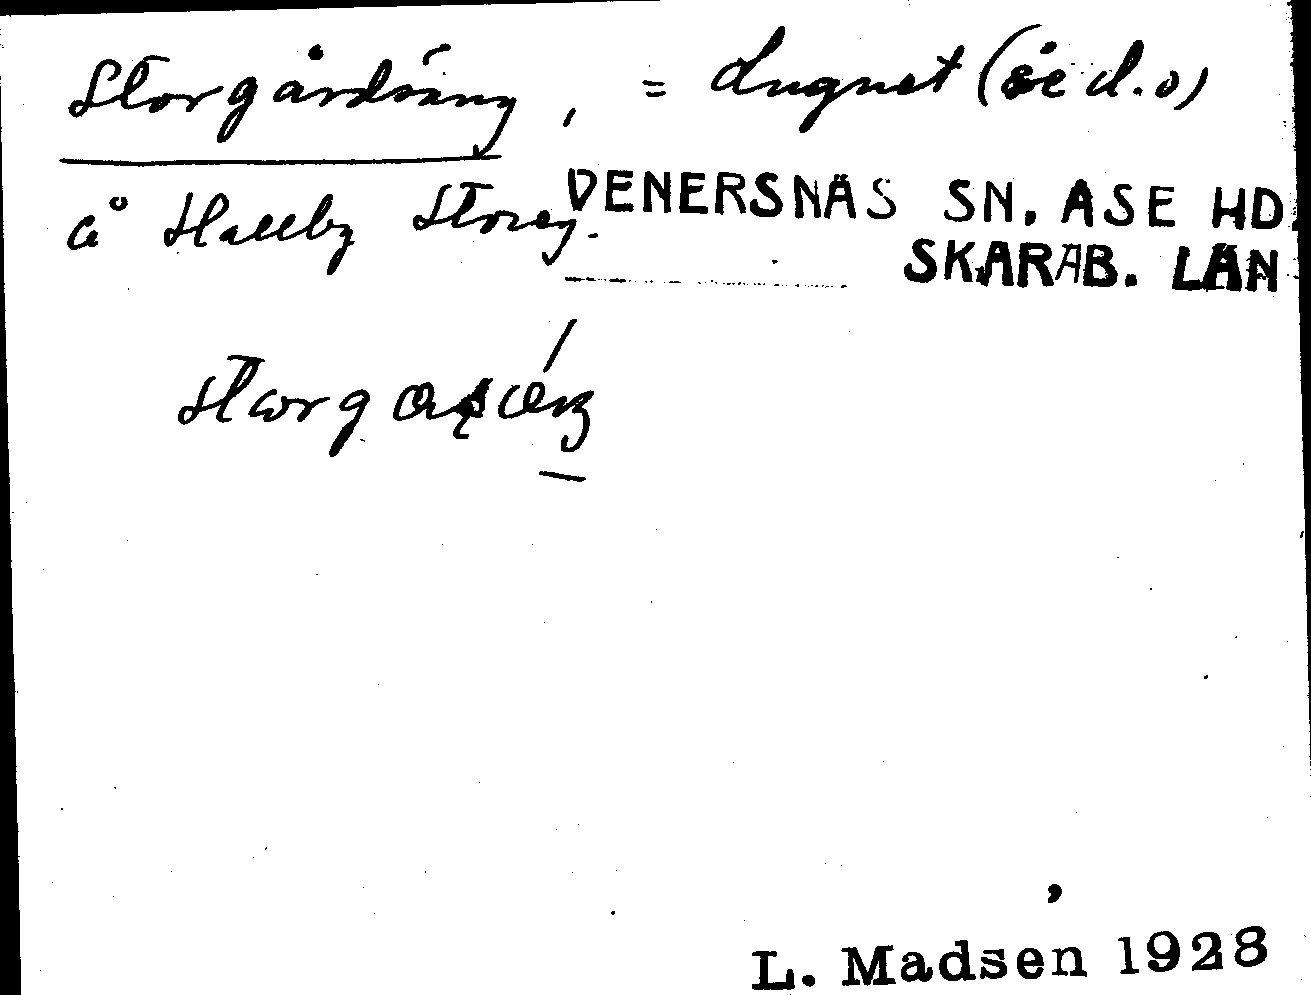 Storgårdsäng, = Lugnet (se d.o)
å Halleby Storeg.
VENERSNÄS SN. ASE HD.
SKARAB. LÄN
L. Madsen 1928